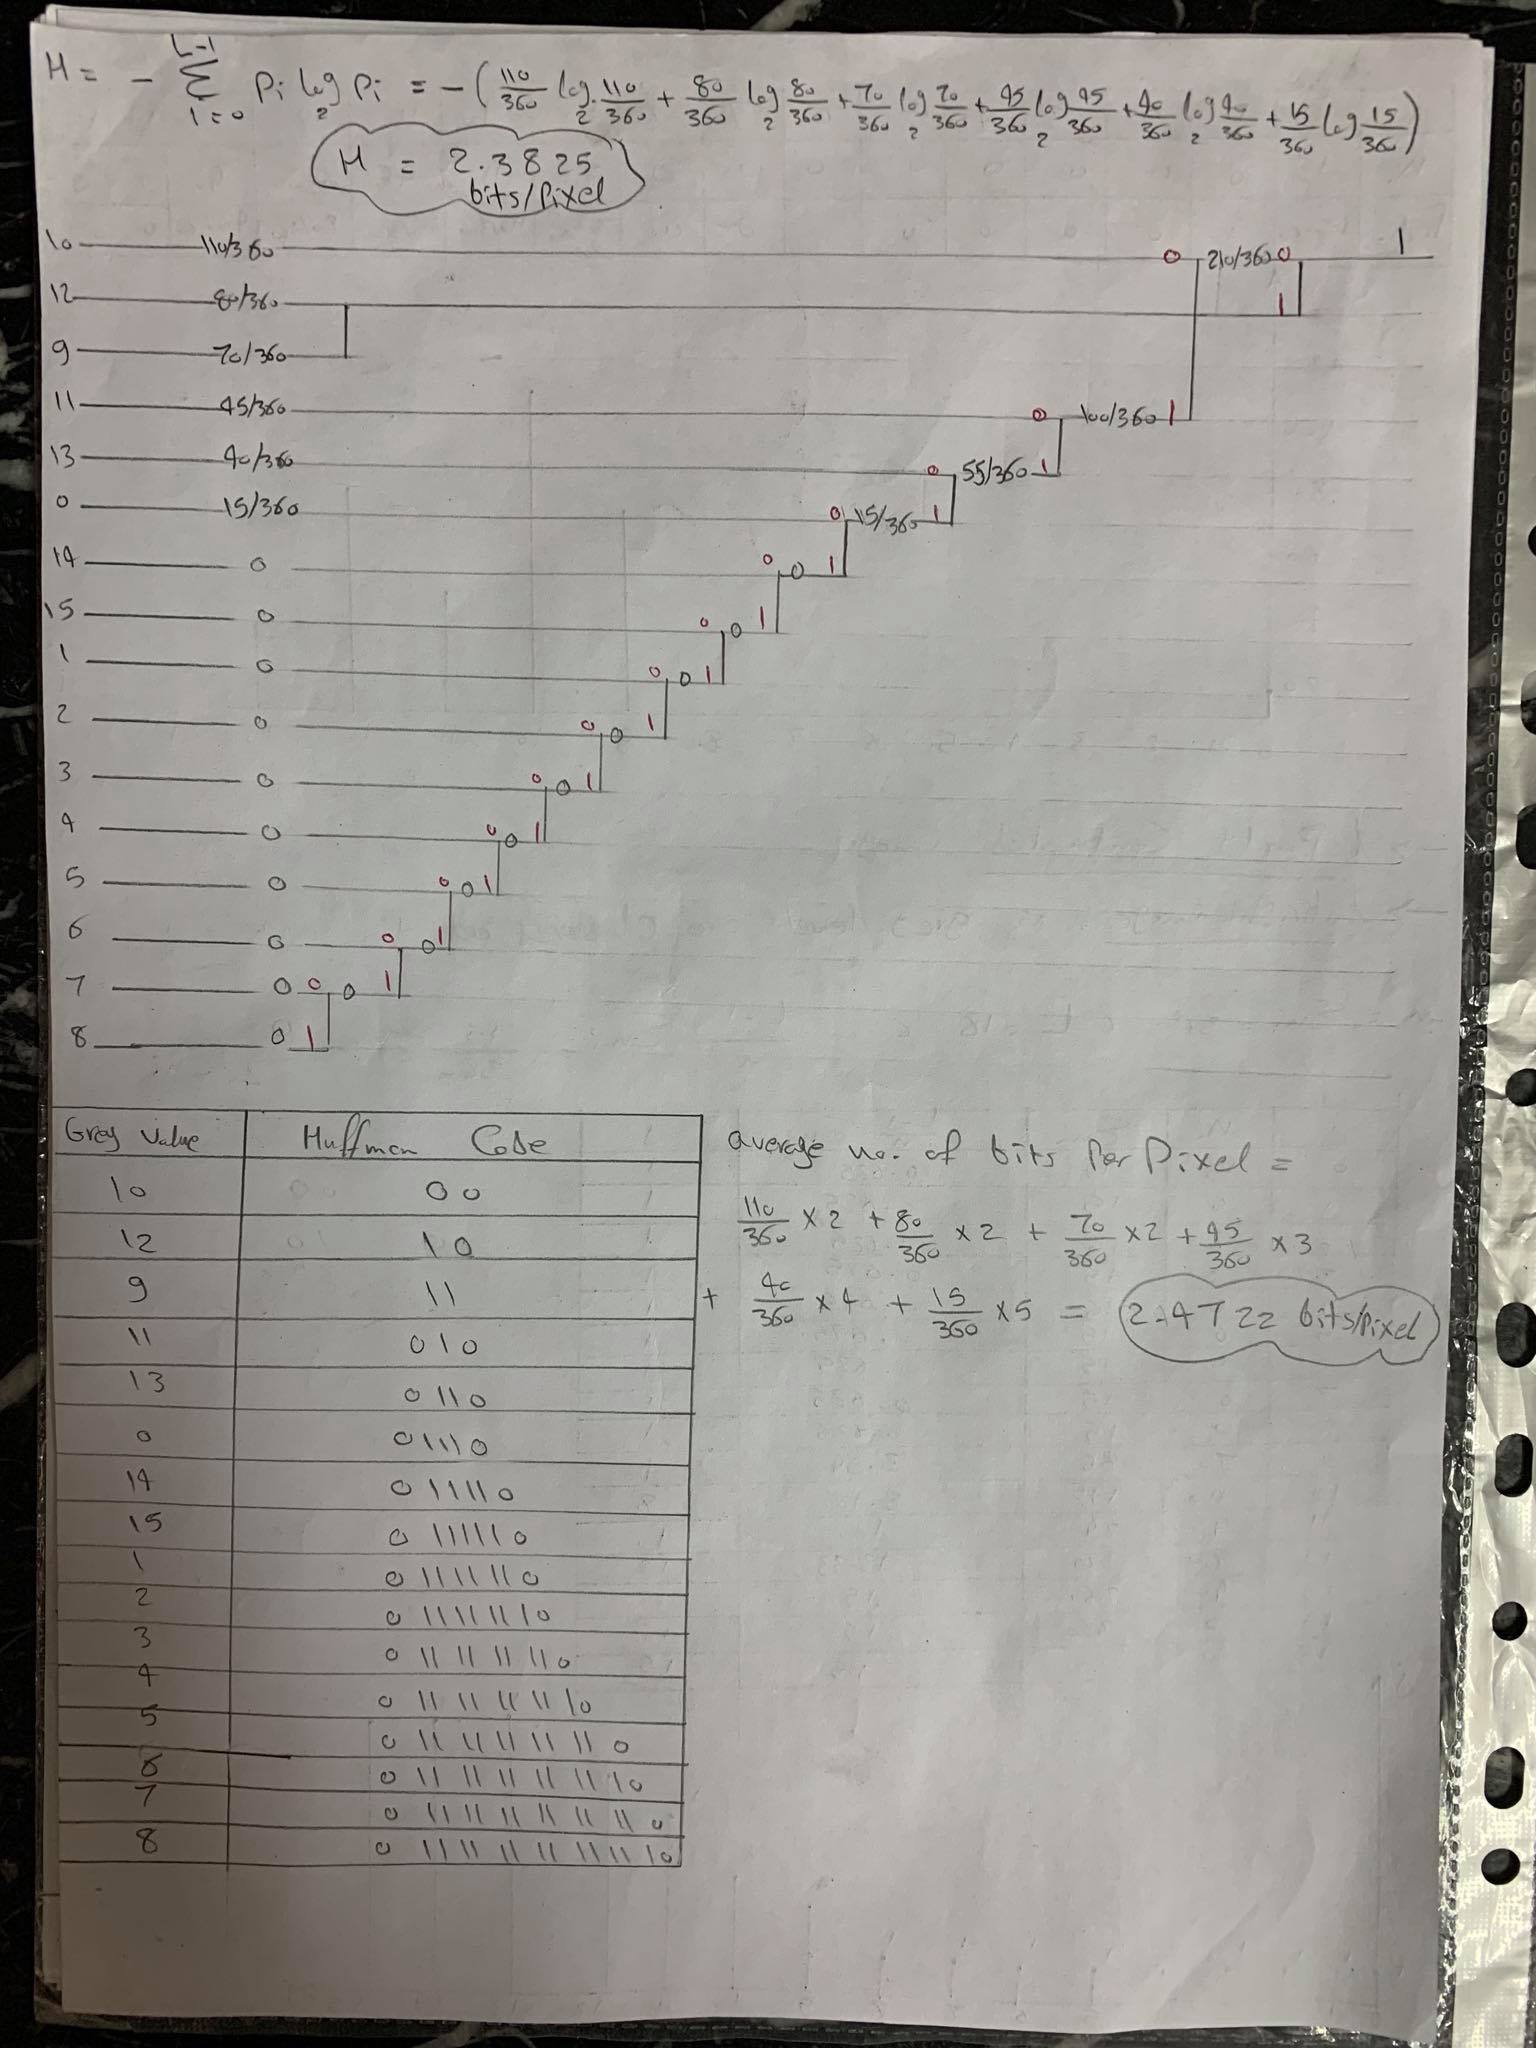 H = - L-1 Σ i=0 Pi log2 Pi = - ( 110/360 log2 110/360 + 80/360 log2 80/360 + 70/360 log2 70/360 + 45/360 log2 45/360 + 40/360 log2 40/360 + 15/360 log 15/360 )
H = 2.3825
bits/Pixel
10 110/360 0 210/360 0 1
12 80/360 1
9 70/360
11 45/360 0 100/360 1
13 40/360 0 55/360 1
0 15/360 0 15/360 1
14 0 0 0 1
15 0 0 0 1
1 0 0 0 1
2 0 0 0 1
3 0 0 0 1
4 0 0 0 1
5 0 0 0 1
6 0 0 0 1
7 0 0 0 1
8 0 1
Grey Value Huffman Code
10 00
12 10
9 11
11 010
13 0110
0 01110
14 011110
15 0111110
1 01111110
2 011111110
3 0111111110
4 01111111110
5 011111111110
6 0111111111110
7 01111111111110
8 011111111111110
average no. of bits Per Pixel =
110/360 × 2 + 80/360 × 2 + 70/360 × 2 + 45/360 × 3
+ 40/360 × 4 + 15/360 × 5 = 2.4722 bits/Pixel